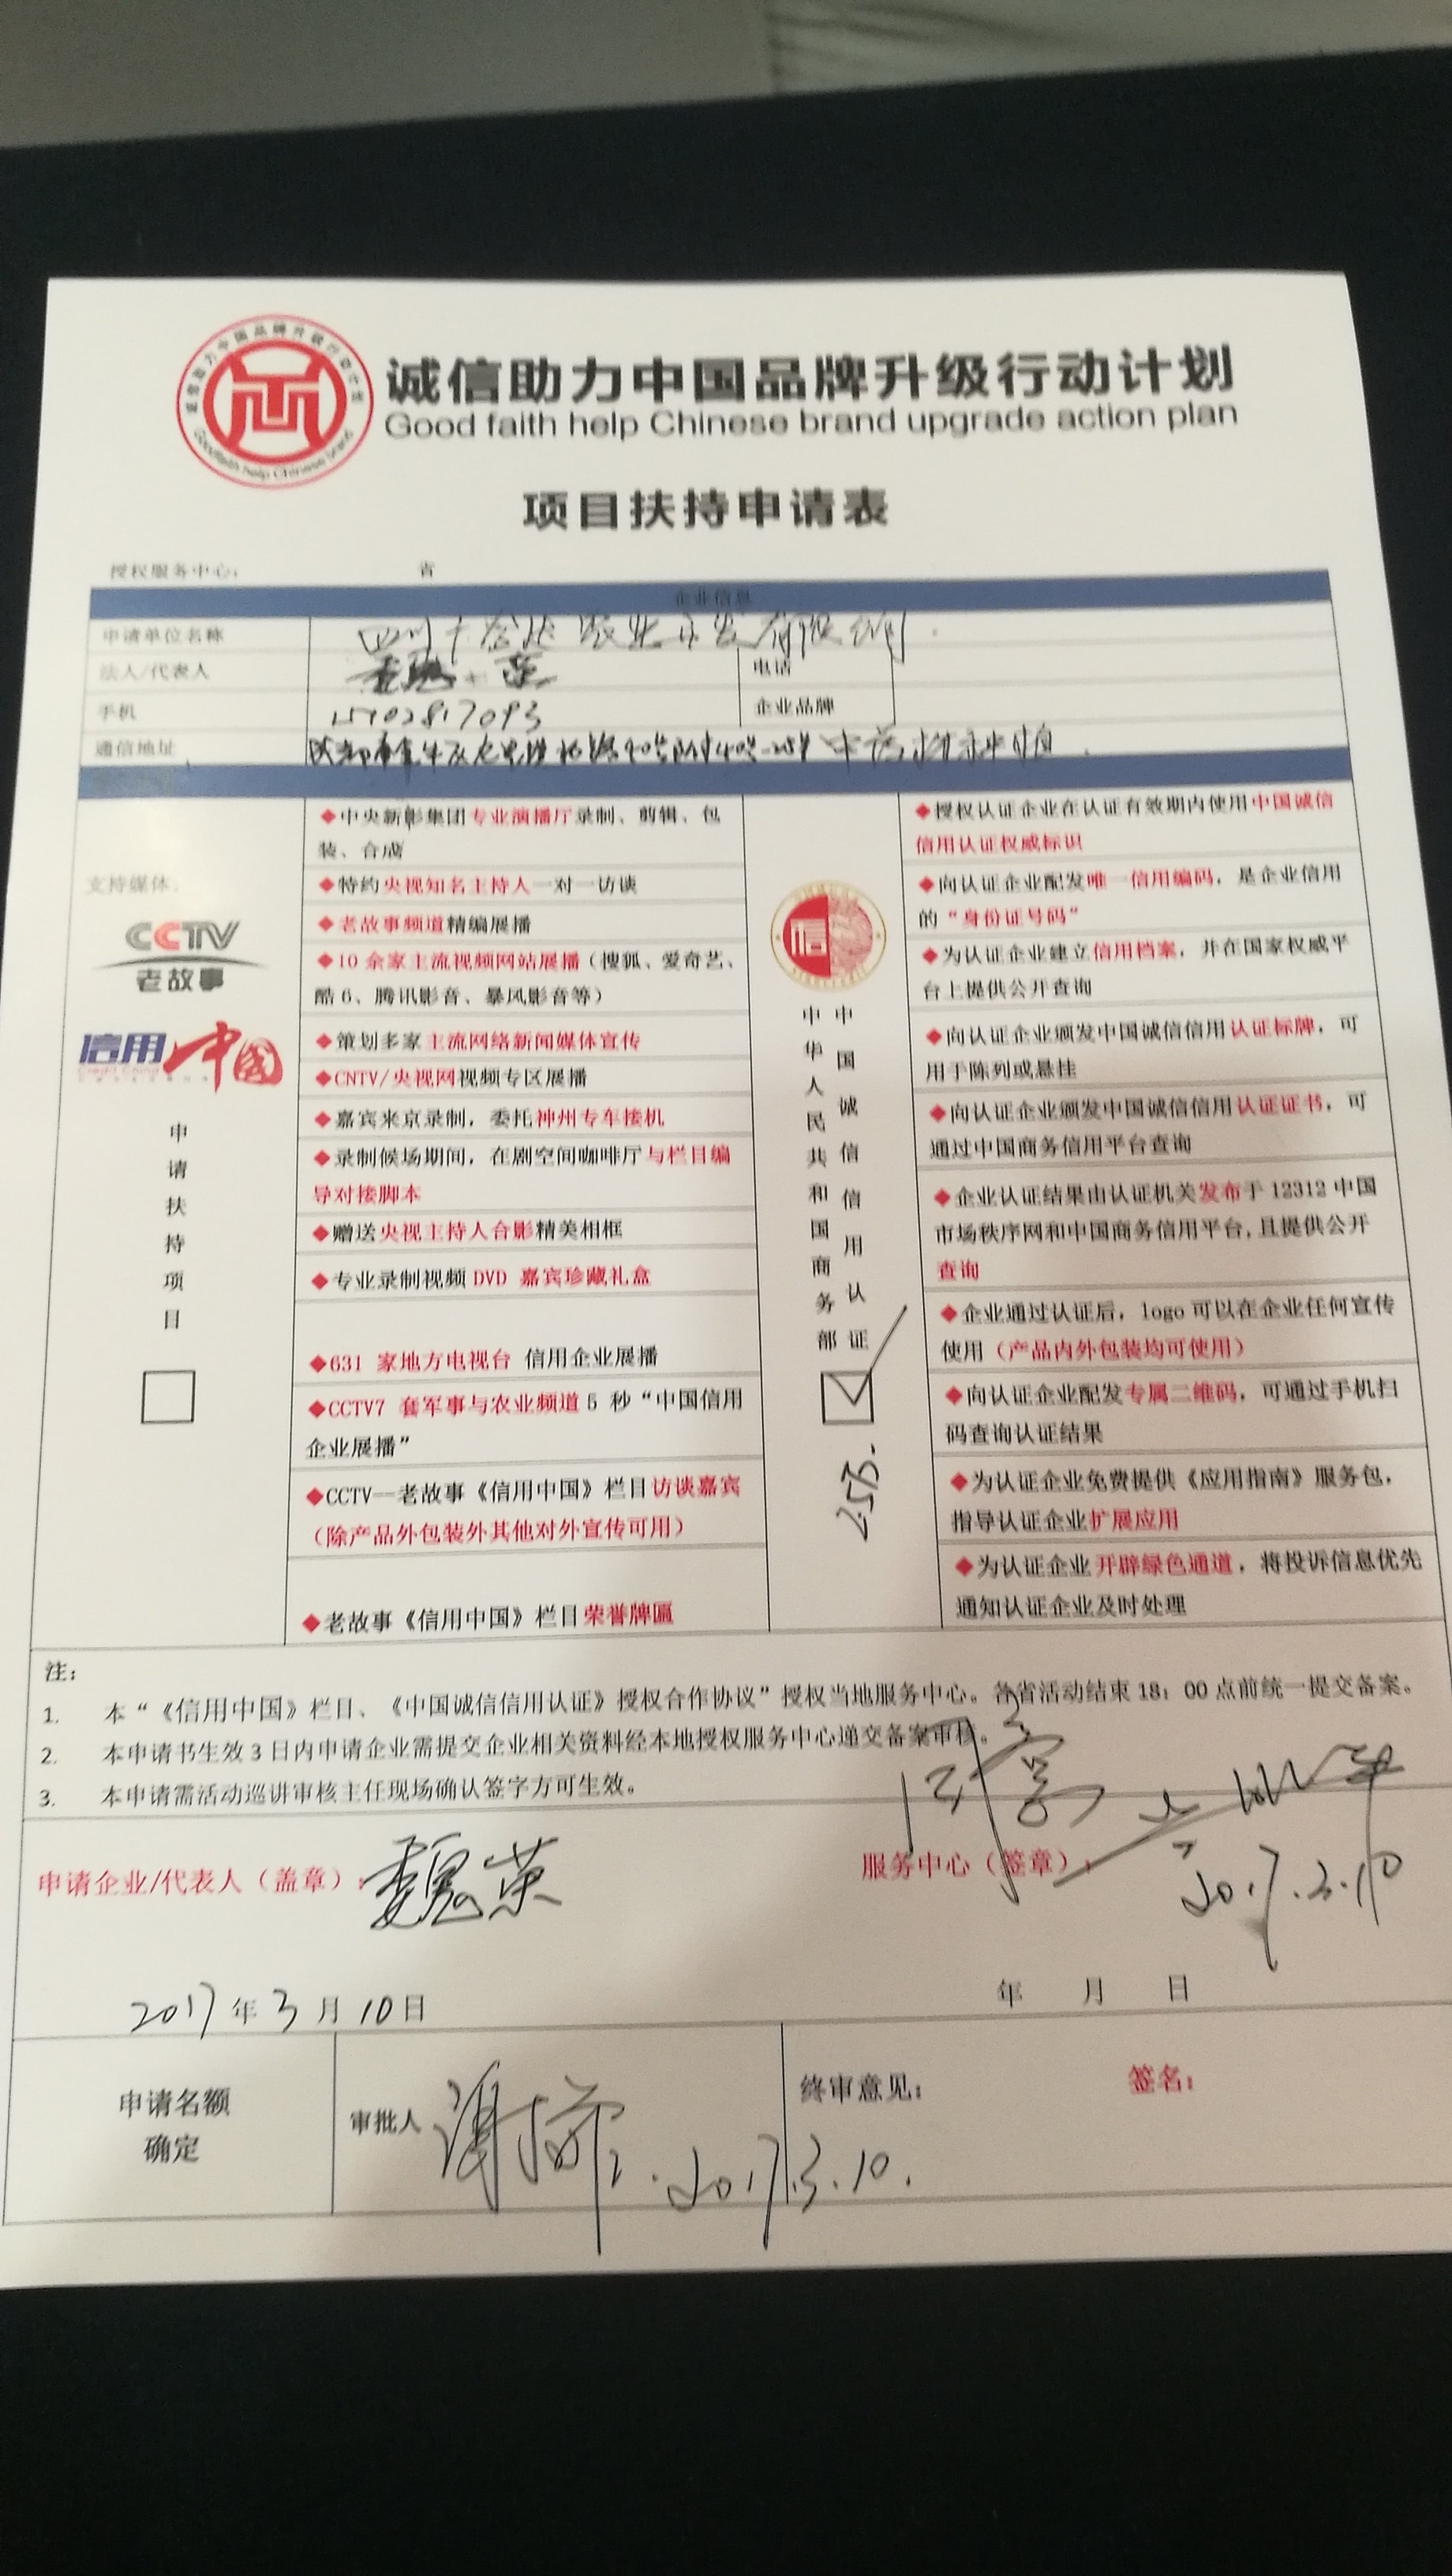 诚信助力中国品牌升级行动计划
Good faith help Chinese brand upgrade action plan
项目扶持申请表
授权服务中心： 省
企业信息
申请单位名称 四川 农业 有限公司
法人/代表人 魏荣 电话
手机 企业品牌
通信地址
支持媒体：
CCTV
老故事
信用中国
Credit China
申请扶持项目
◆中央新影集团专业演播厅录制、剪辑、包
装、合成
◆特约央视知名主持人一对一访谈
◆老故事频道精编展播
◆10 余家主流视频网站展播（搜狐、爱奇艺、
酷 6、腾讯影音、暴风影音等）
◆策划多家主流网络新闻媒体宣传
◆CNTV/央视网视频专区展播
◆嘉宾来京录制，委托神州专车接机
◆录制候场期间，在剧空间咖啡厅与栏目编
导对接脚本
◆赠送央视主持人合影精美相框
◆专业录制视频 DVD 嘉宾珍藏礼盒
◆631 家地方电视台 信用企业展播
◆CCTV7 套军事与农业频道 5 秒“中国信用
企业展播”
◆CCTV--老故事《信用中国》栏目访谈嘉宾
（除产品外包装外其他对外宣传可用）
◆老故事《信用中国》栏目荣誉牌匾
信
中华人民共和国商务部
中国诚信信用认证
2.5万.
◆授权认证企业在认证有效期内使用中国诚信
信用认证权威标识
◆向认证企业配发唯一信用编码，是企业信用
的“身份证号码”
◆为认证企业建立信用档案，并在国家权威平
台上提供公开查询
◆向认证企业颁发中国诚信信用认证标牌，可
用于陈列或悬挂
◆向认证企业颁发中国诚信信用认证证书，可
通过中国商务信用平台查询
◆企业认证结果由认证机关发布于 12312 中国
市场秩序网和中国商务信用平台,且提供公开
查询
◆企业通过认证后，logo 可以在企业任何宣传
使用（产品内外包装均可使用）
◆向认证企业配发专属二维码，可通过手机扫
码查询认证结果
◆为认证企业免费提供《应用指南》服务包，
指导认证企业扩展应用
◆为认证企业开辟绿色通道，将投诉信息优先
通知认证企业及时处理
注：
1. 本“《信用中国》栏目、《中国诚信信用认证》授权合作协议”授权当地服务中心。各省活动结束 18：00 点前统一提交备案。
2. 本申请书生效 3 日内申请企业需提交企业相关资料经本地授权服务中心递交备案审核。
3. 本申请需活动巡讲审核主任现场确认签字方可生效。
申请企业/代表人（盖章）：魏荣
服务中心（签章）：
2017.3.10
2017 年 3 月 10 日
年 月 日
申请名额
确定
审批人
2017.3.10.
终审意见：
签名：